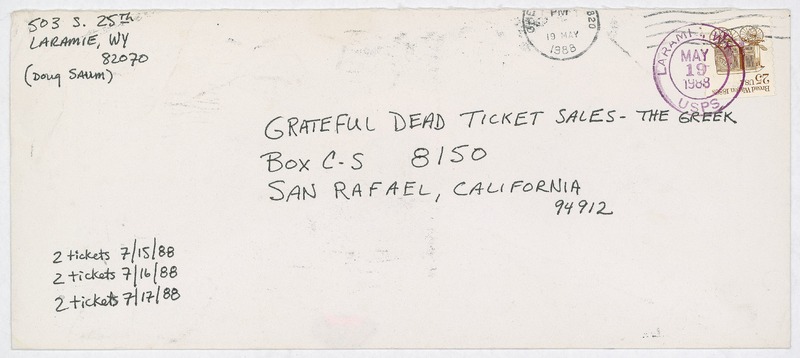 503 S. 25TH
LARAMIE, WY
82070
(Doug Saum)
PM
19 MAY
1988
820
LARAMIE, WY
MAY
19
1988
USPS
Bread Wagon 1880s
25 USA
GRATEFUL DEAD TICKET SALES - THE GREEK
Box C-S 8150
SAN RAFAEL, CALIFORNIA
94912
2 tickets 7/15/88
2 tickets 7/16/88
2 tickets 7/17/88